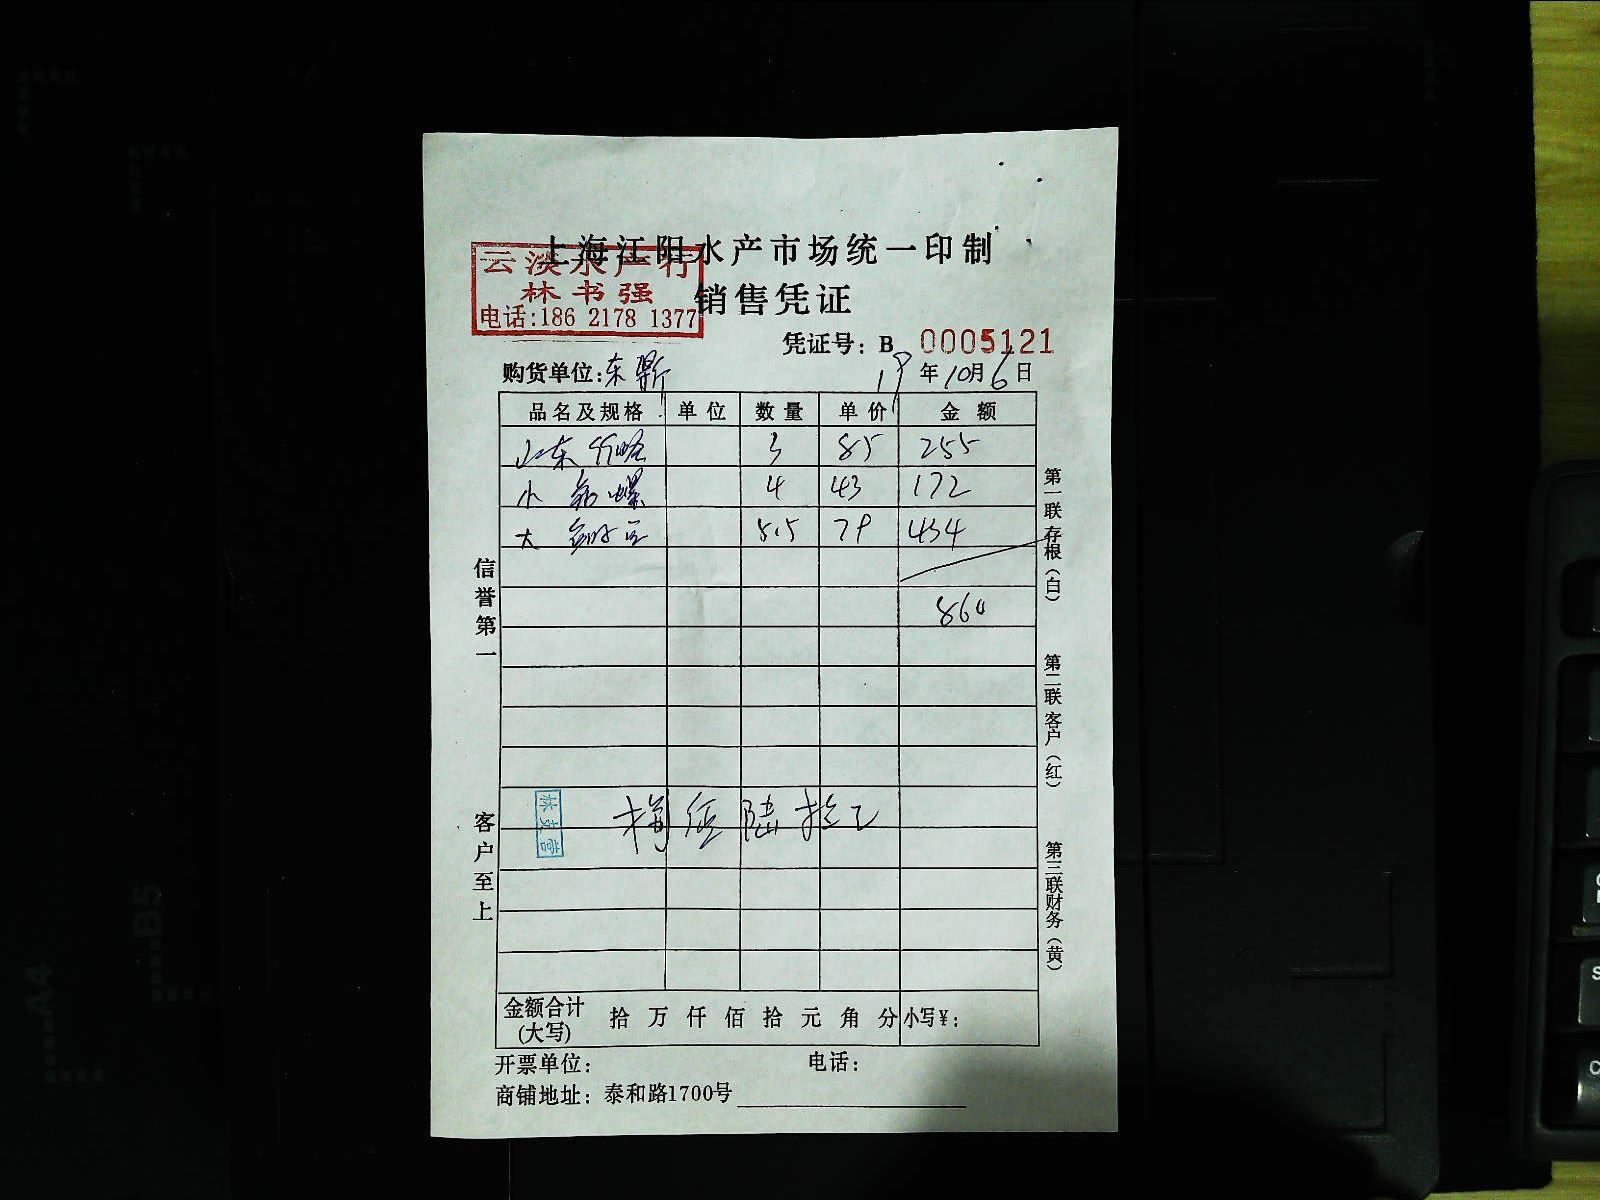 上海江阳水产市场统一印制
云淡水产行
林书强
电话:186 2178 1377
销售凭证
凭证号：B 0005121
购货单位:东
19年10月6日
品名及规格 单位 数量 单价 金额
山东 3 85 255
小 螺 4 43 172
大 5.5 79 434
860
信誉第一
客户至上
第一联存根（白）
第二联客户（红）
第三联财务（黄）
捌佰陆拾元
金额合计(大写) 拾万仟佰拾元角分 小写¥：
开票单位： 电话：
商铺地址：泰和路1700号
A4
B5